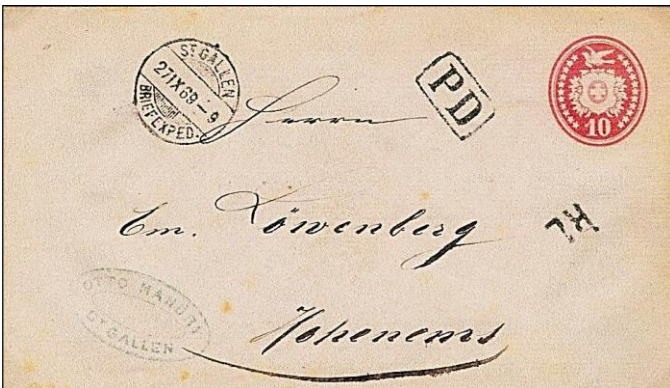 ST. GALLEN
27 IX 69 – 9
BRIEFEXPED.
PD
10
Herrn
Em. Löwenberg
RL
Hohenems
OTTO
ST. GALLEN